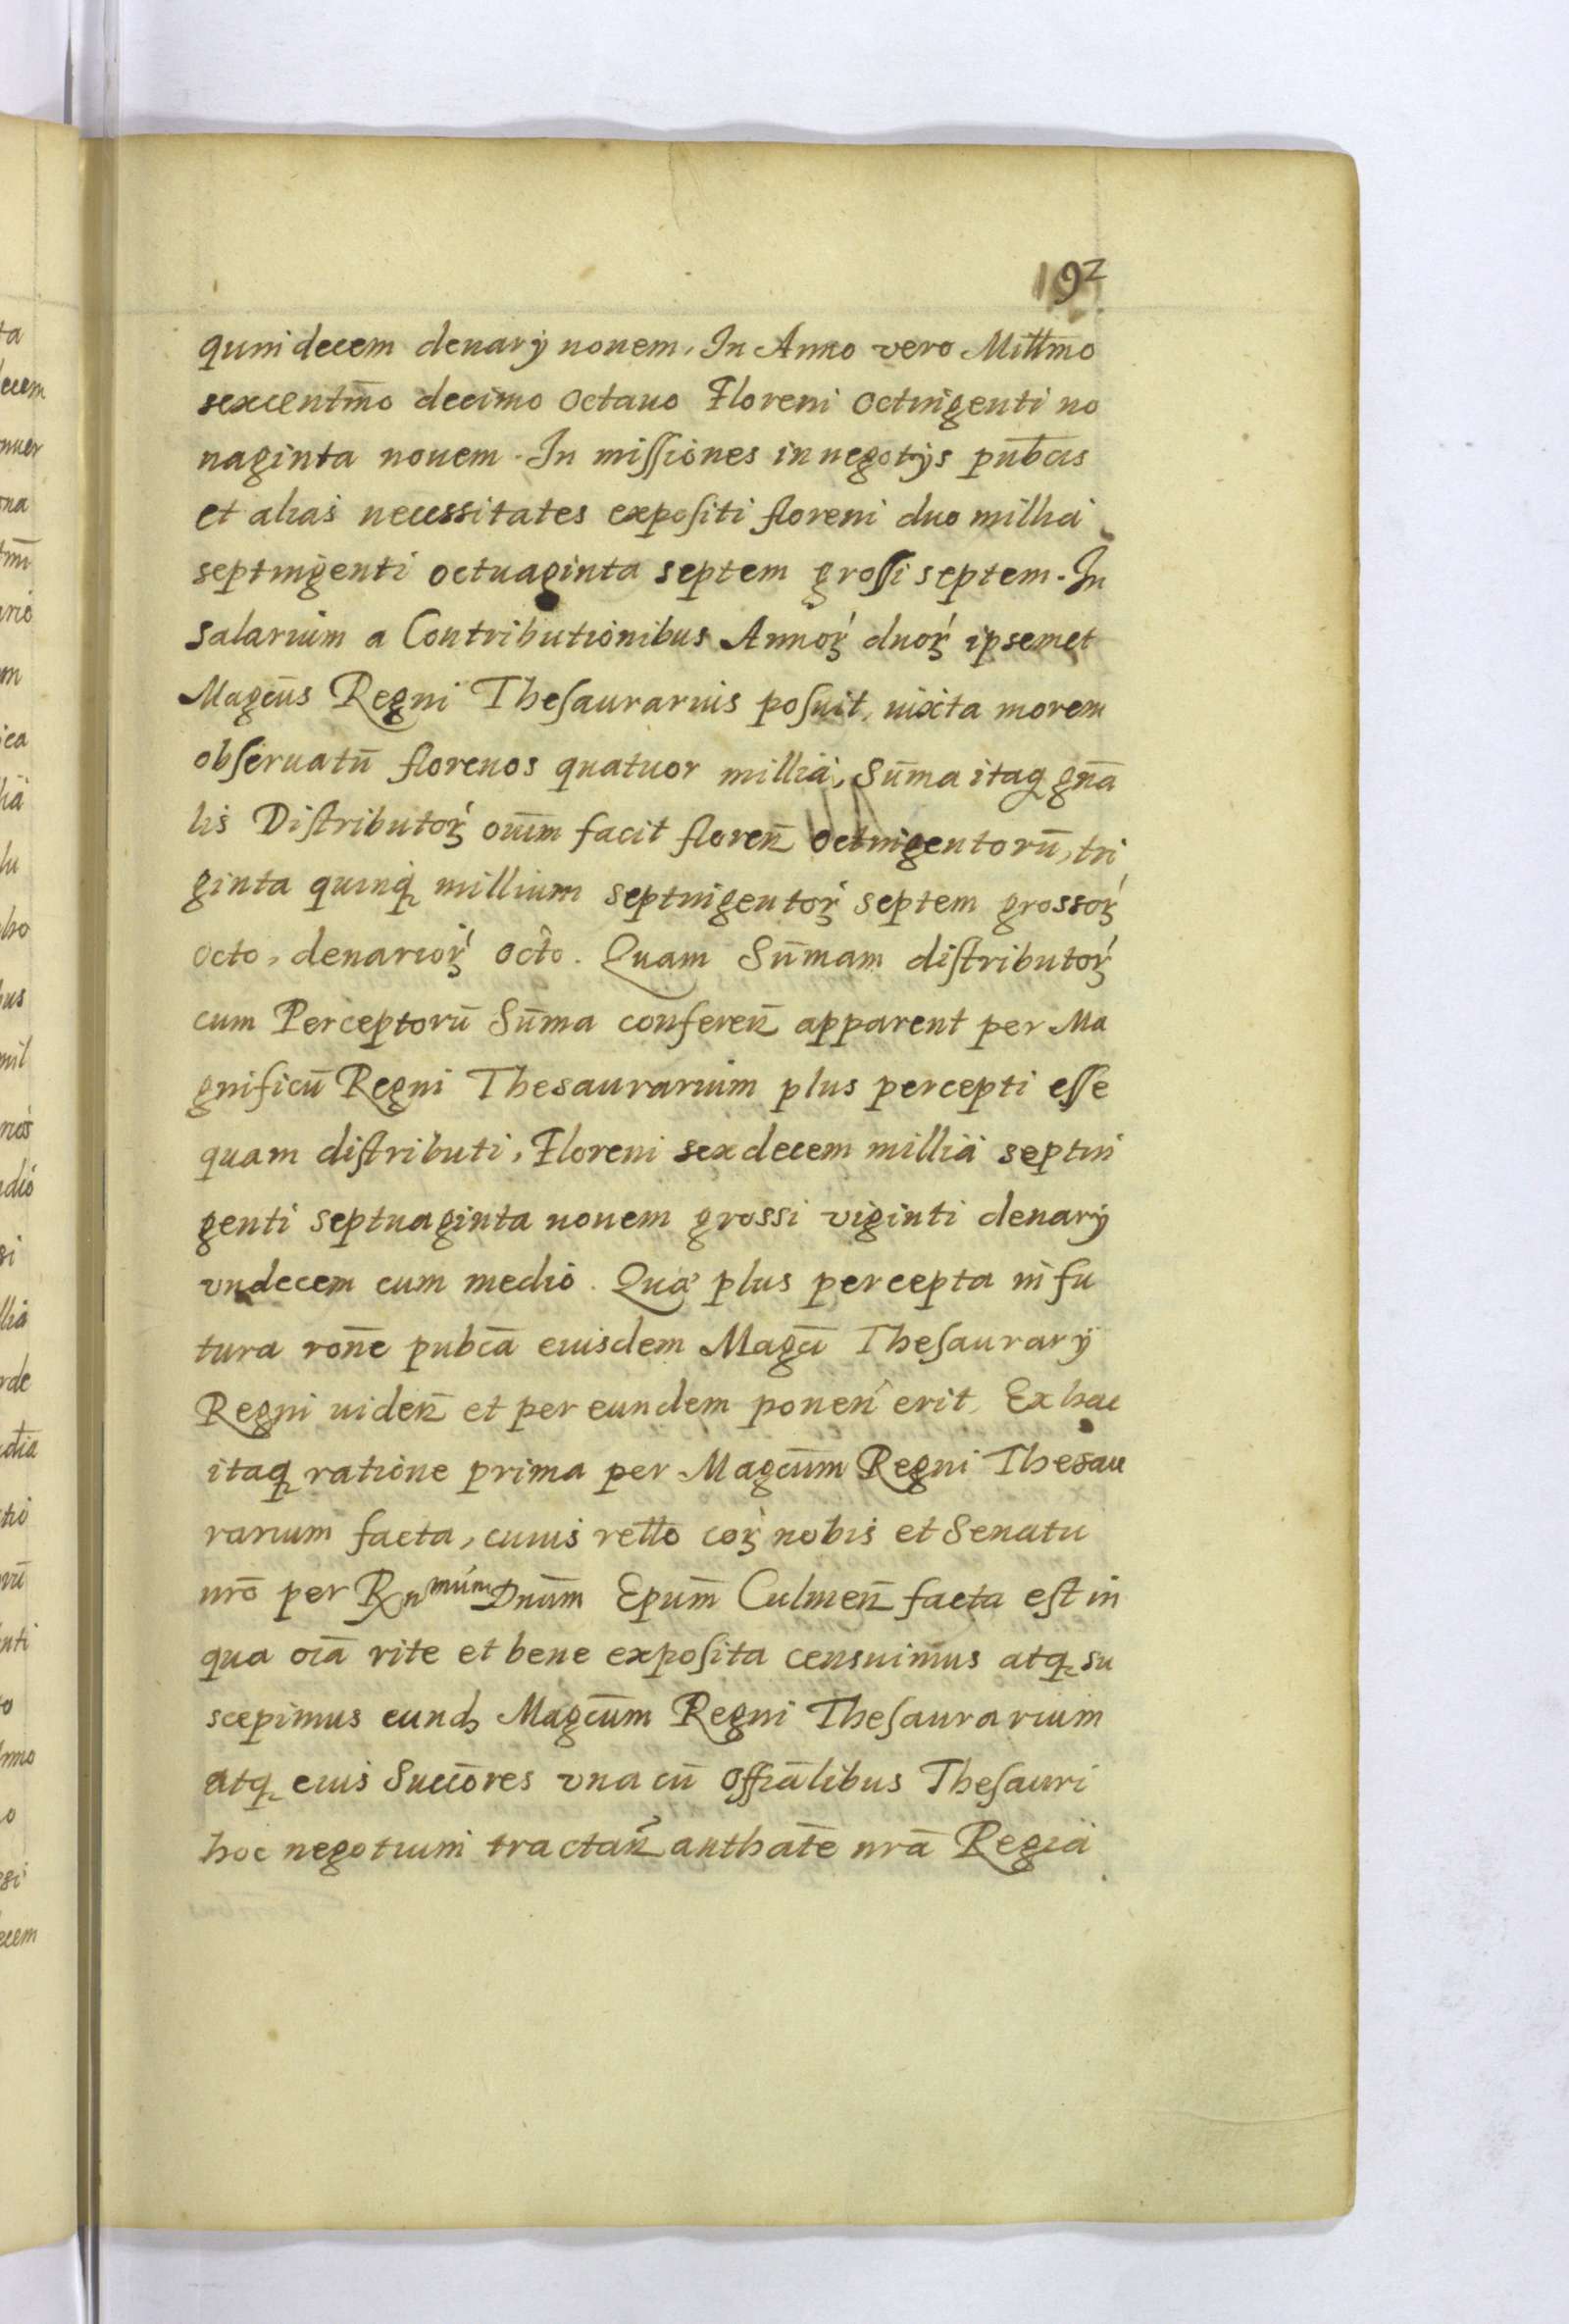 192
quindecem denarÿ nouem. In Anno vero Millmo
sexcentmo decimo octauo Floreni octingenti no
naginta nouem. In missiones in negotÿs pubcis
et alias necessitates expositi floreni duo millia
septingenti octuaginta septem grossi septem. In
salarium a Contributionibus Annoꝝ duoꝝ ipsemet
Magcus Regni Thesaurarius posuit, iuxta morem
obseruatū florenos quatuor millia, Sūma itaqꝫ gnā
lis Distributoꝝ oīum facit floreñ octingentorū, tri
ginta quinqꝫ millium septingentoꝝ septem grossoꝝ
octo, denarioꝝ octo. Quam Sūmam distributoꝝ
cum Perceptorū Sūma confereñ apparent per Ma
gnificū Regni Thesaurarium plus percepti esse
quam distributi, Floreni sexdecem millia septin
genti septuaginta nouem grossi viginti denarÿ
vndecem cum medio. Quæ plus percepta in fu
tura rōne pubcā eiusdem Magci Thesaurarÿ
Regni uideñ et per eundem poneñ erit. Ex hac
itaqꝫ ratione prima per Magcūm Regni Thesau
rarium facta, cuius retto coꝝ nobis et Senatu
nrō per Rnmum Dnūm Epūm Culmeñ facta est in
qua oīa rite et bene exposita censuimus atqꝫ su
scepimus eundꝫ Magcūm Regni Thesaurarium
atqꝫ eius Succōres vna cū offiālibus Thesauri
hoc negotium tractañ authāte nrā Regia